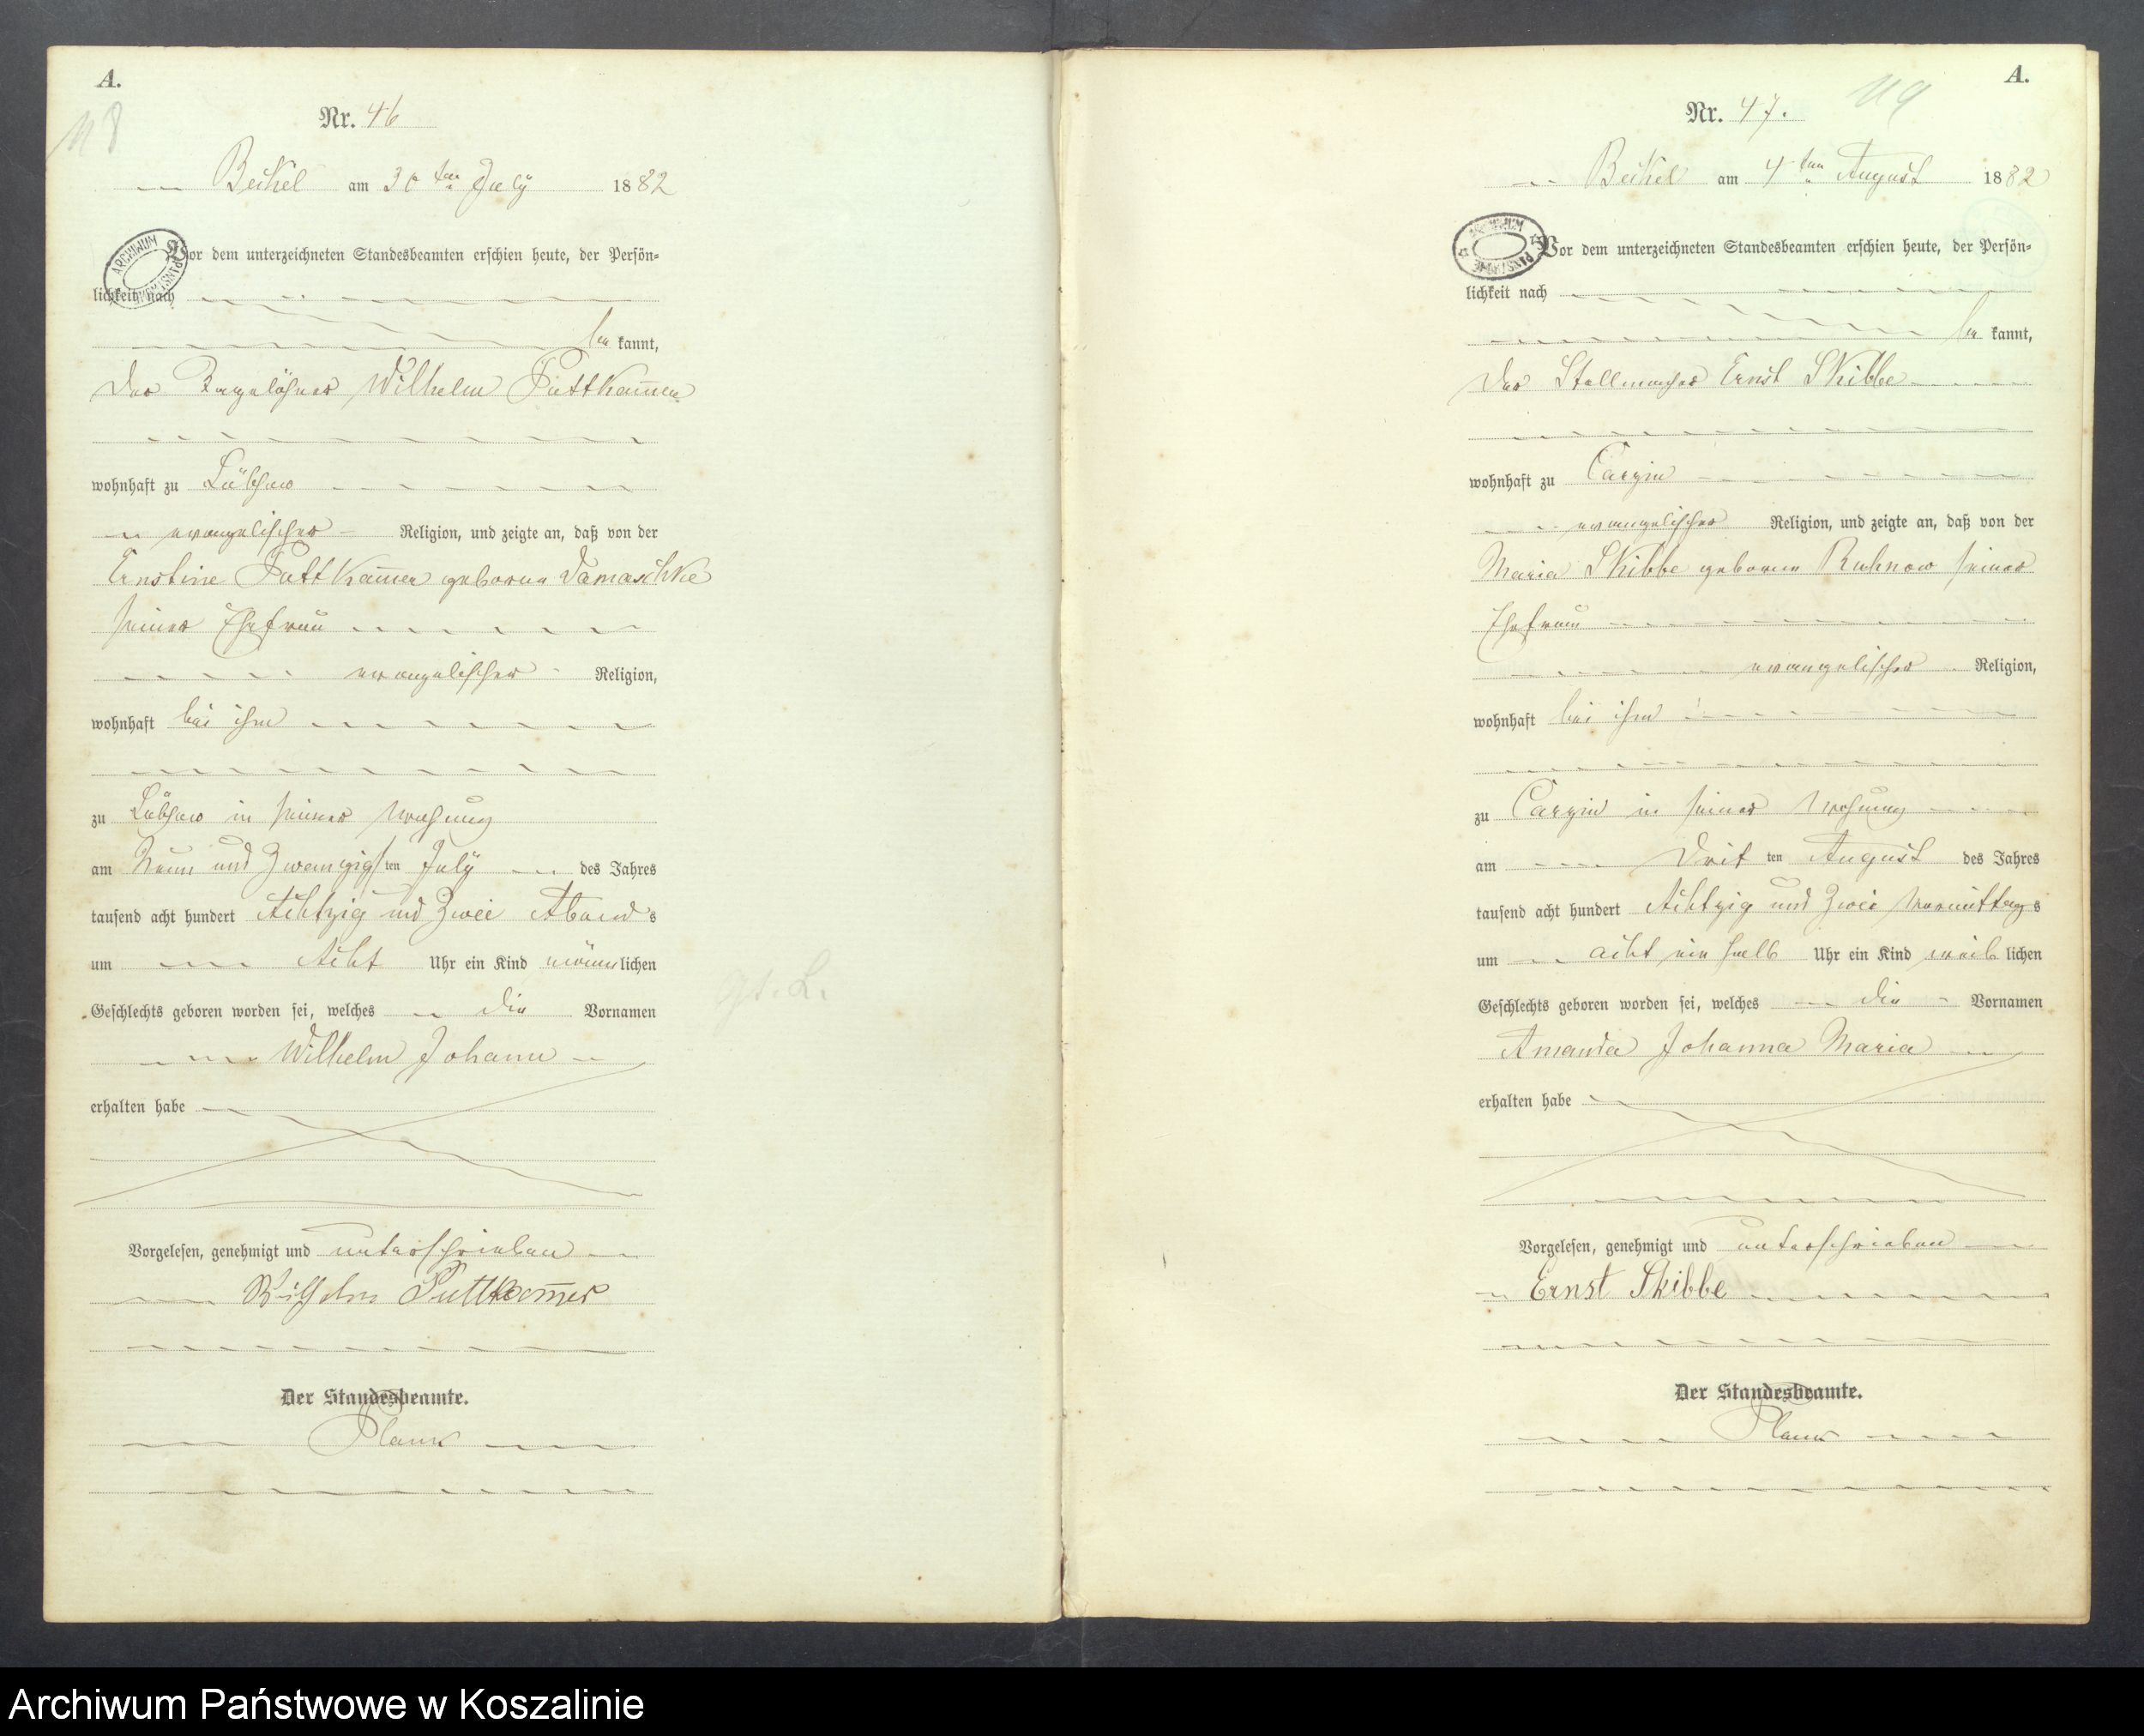 A.
118
Nr. 46
Beckel am 30 ten July 1882
ARCHIWUM PAŃSTWOWE
Vor dem unterzeichneten Standesbeamten erschien heute, der Persön-
lichkeit nach
be kannt,
der Tagelöhner Wilhelm Puttkam̅er
wohnhaft zu Lübzow
evangelischer Religion, und zeigte an, daß von der
Ernstine Puttkam̅er geborne Damaschke
seiner Ehefrau
evangelischer Religion,
wohnhaft bei ihm
zu Lübzow in seiner Wohnung
am Neun und Zwanzigsten July des Jahres
tausend acht hundert Achtzig und Zwei Abends
um Acht Uhr ein Kind männlichen
Geschlechts geboren worden sei, welches die Vornamen
Wilhelm Johann
erhalten habe
Vorgelesen, genehmigt und unterschrieben
Wilhelm Puttkam̅er
Der Standesbeamte.
Plank
A.
119
Nr. 47.
Beckel am 4 ten August 1882
ARCHIWUM PAŃSTWOWE
Vor dem unterzeichneten Standesbeamten erschien heute, der Persön-
lichkeit nach
be kannt,
der Stellmacher Ernst Skibbe
wohnhaft zu Carzin
evangelischer Religion, und zeigte an, daß von der
Maria Skibbe geborne Ruhnow seiner
Ehefrau
evangelischer Religion,
wohnhaft bei ihm
zu Carzin in seiner Wohnung
am Drit ten August des Jahres
tausend acht hundert Achtzig und Zwei Vormittags
um acht ein halb Uhr ein Kind weib lichen
Geschlechts geboren worden sei, welches die Vornamen
Amanda Johanna Maria
erhalten habe
Vorgelesen, genehmigt und unterschrieben
Ernst Skibbe
Der Standesbeamte.
Plank
Archiwum Państwowe w Koszalinie